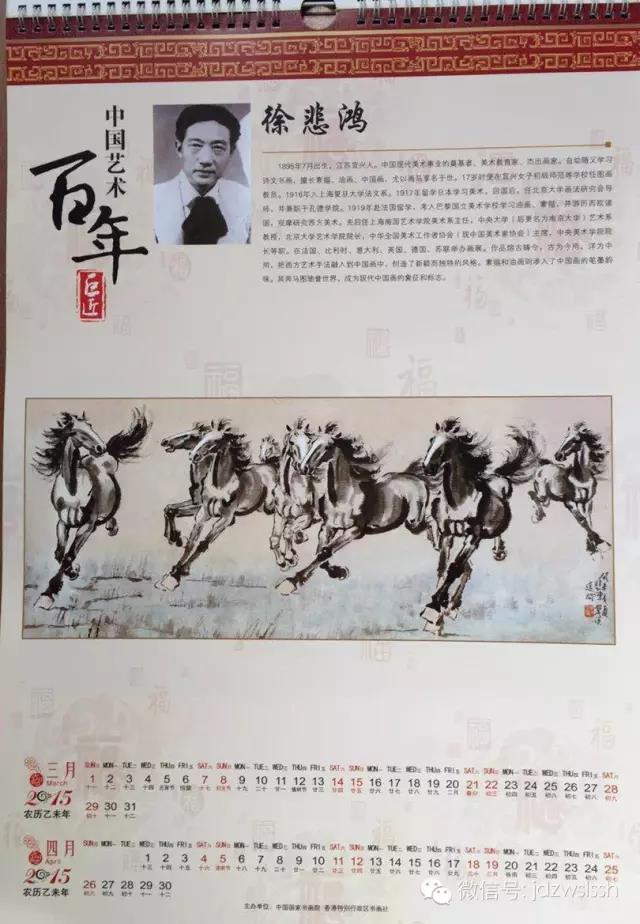 中国艺术
百年
巨匠
徐悲鸿
1895年7月出生,江苏宜兴人。中国现代美术事业的奠基者、美术教育家、杰出画家。自幼随父学习
诗文书画,擅长素描、油画、中国画,尤以画马享名于世。17岁时便在宜兴女子初级师范等学校任图画
教员。1916年入上海复旦大学法文系。1917年留学日本学习美术,回国后,任北京大学画法研究会导
师,并兼职于孔德学院。1919年赴法国留学,考入巴黎国立美术学校学习油画、素描,并游历西欧诸
国,观摩研究西方美术。先后任上海南国艺术学院美术系主任,中央大学(后更名为南京大学)艺术系
教授,北京大学艺术学院院长,中华全国美术工作者协会(现中国美术家协会)主席,中央美术学院院
长等职。在法国、比利时、意大利、英国、德国、苏联举办画展。作品熔古铸今,古为今用,洋为中
用,把西方艺术手法融入到中国画中,创造了新颖而独特的风格。素描和油画则渗入了中国画的笔墨韵
味。其奔马图驰誉世界,成为现代中国画的象征和标志。
三月
March
2015
农历乙未年
SUN日 MON一 TUE二 WED三 THU四 FRI五 SAT六 SUN日 MON一 TUE二 WED三 THU四 FRI五 SAT六 SUN日 MON一 TUE二 WED三 THU四 FRI五 SAT六 SUN日 MON一 TUE二 WED三 THU四 FRI五 SAT六
1 2 3 4 5 6 7 8 9 10 11 12 13 14 15 16 17 18 19 20 21 22 23 24 25 26 27 28
十一 十二 十三 十四 元宵节 惊蛰 十七 妇女节 十九 二十 廿一 植树节 廿三 廿四 廿五 廿六 廿七 廿八 廿九 二月 春分 初三 初四 初五 初六 初七 初八 初九
29 30 31
初十 十一 十二
四月
April
2015
农历乙未年
SUN日 MON一 TUE二 WED三 THU四 FRI五 SAT六 SUN日 MON一 TUE二 WED三 THU四 FRI五 SAT六 SUN日 MON一 TUE二 WED三 THU四 FRI五 SAT六 SUN日 MON一 TUE二 WED三 THU四 FRI五 SAT六
1 2 3 4 5 6 7 8 9 10 11 12 13 14 15 16 17 18 19 20 21 22 23 24 25
26 27 28 29 30
主办单位:中国国家书画院 香港特别行政区书画社
微信号: jdzwslssh